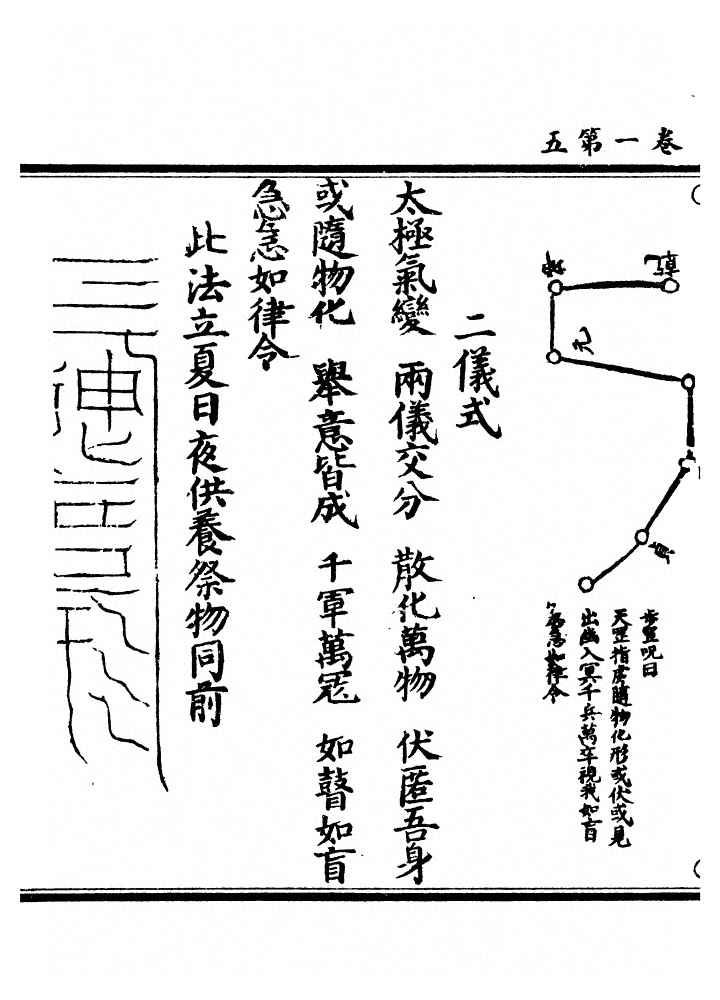 卷一第五
步罡咒曰
天罡指處隨物化形或伏或見
出幽入冥千兵萬卒視我如盲
急急如律令
二儀式
太極氣變 兩儀交分 散化萬物 伏匿吾身
或隨物化 舉意皆成 千軍萬冦 如瞽如盲
急急如律令
此法立夏日夜供養祭物同前